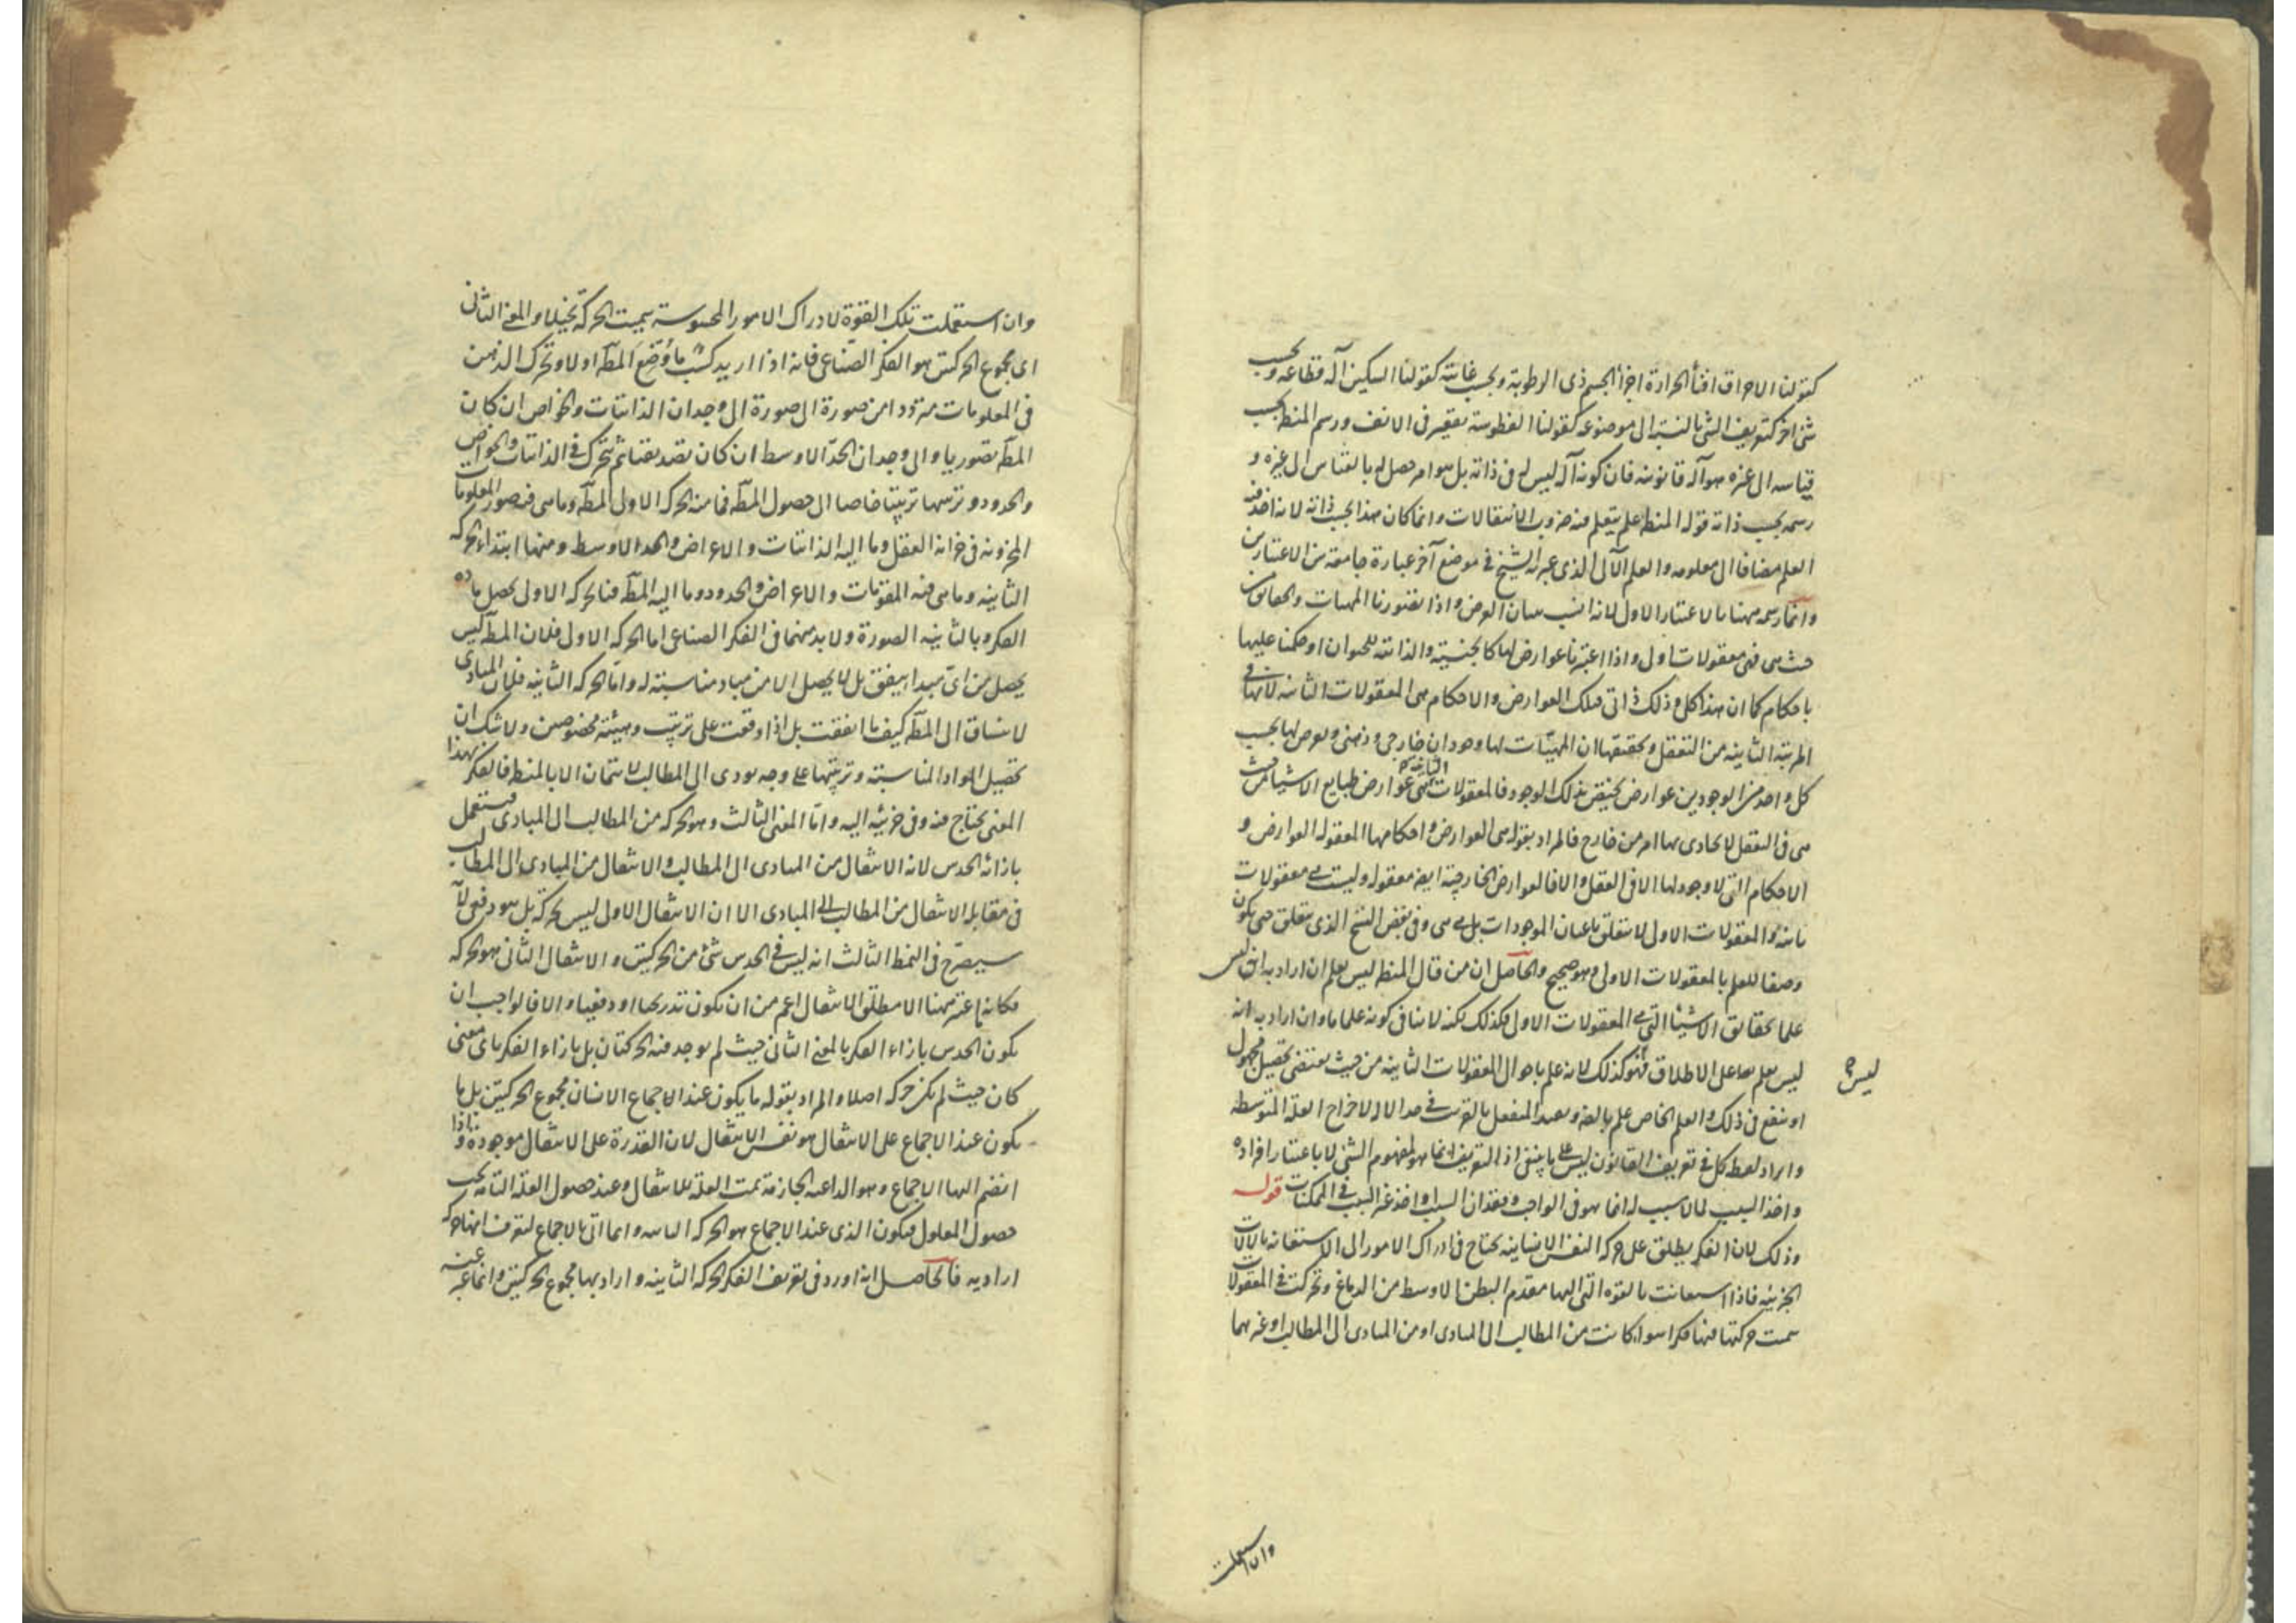 كقولنا الاحراق افناء الحرارة اجزاء الجسم ذى الرطوبة وبحسب غايته كقولنا السكين آلة قطاعة وبحسب
شئ آخر كتعريف الشئ بالنسبة الى موضوعه كقولنا الفطوسة تقعير فى الانف ورسم المنطق بحسب
قياسه الى غيره هو آلة قانونية فان كونه آلة ليس له فى ذاته بل هو امر حصل له بالقياس الى غيره و
رسمه بحسب ذاته قوله المنطق علم يتعلم منه ضروب الانتقالات وانما كان هذا بحسب ذاته لانه اخذ فيه
العلم مضافا الى معلومه والعلم الآلى الذى عبر به الشيخ فى موضع آخر عبارة جامعة من الاعتبارين
وانما رسمه ههنا بالاعتبار الاول لانه انسب ببيان الغرض واذا تصورنا المهيات والحقايق من
حيث هى فهى معقولات اولى واذا اعتبرنا عوارض لها كالجنسية والذاتية للحيوان او حكمنا عليها
باحكام كما ان هذا كلى وذلك ذاتى فتلك العوارض والاحكام هى المعقولات الثانية لانها فى
المرتبة الثانية من التعقل وتحقيقها ان المهيّات لها وجودان خارجى وذهنى ويعرض لها بحسب
كل واحد من الوجودين عوارض تختص بذلك الوجود فالمعقولات الثانية هى عوارض طبايع الاشياء من حيث
هى فى العقل لا يحاذى بها امر من خارج فالمراد بقوله هى العوارض واحكامها المعقوله العوارض و
الاحكام التى لا وجود لها الا فى العقل والا فالعوارض الخارجية ايضا معقوله وليست هى معقولات
ثانية والمعقولات الاولى لا يتعلق باعيان الموجودات بل هى هى وفى بعض النسخ الذى يتعلق حتى يكون
وصفا للعلم بالمعقولات الاولى وهو صحيح والحاصل ان من قال المنطق ليس بعلم ان اراد به انه ليس
علما بحقايق الاشياء التى هى المعقولات الاولى فكذلك لكنه لا ينافى كونه علما ما وان اراد به انه
ليس بعلم ما على الاطلاق فهو كذلك لانه علم باحوال المعقولات الثانية من حيث يقتضى تحصيل مجهول
ليس
او ينفع فى ذلك والعلم الخاص علم بالضرورة وتقييد المنفعل بالقريب فى حد الآلة لاخراج العلة المتوسطة
وايراد لفظ كل فى تعريف القانون ليس على ما ينبغى اذ التعريف انما هو لمفهوم الشئ لا باعتبار افراده
واخذ السبب لما لا سبب له انما هو فى الواجب وفقدان السبب واخذ غير السبب فى الممكنات قوله
وذلك لان الفكر يطلق على حركة النفس الانسانية يحتاج فى ادراك الامور الى الاستعانة بالآلات
الجزئية فاذا استعانت بالقوة التى آلتها مقدم البطن الاوسط من الدماغ وتحركت فى المعقولات
سميت حركتها فيها فكرا سواء كانت من المطالب الى المبادى او من المبادى الى المطالب او غيرهما
وان استعملت
وان استعملت تلك القوّة لادراك الامور المحسوسة سميت الحركة تخيلا والمعنى الثانى
اى مجموع الحركتين هو الفكر الصناعى فانه اذا اريد كسب ما وُضِعَ المط اولا وتحرك الذهن
فى المعلومات مترددا من صورة الى صورة الى وجدان الذاتيات والخواص ان كان
المط تصوريا والى وجدان الحدّ الاوسط ان كان تصديقيا ثم تحرك فى الذاتيات والخواص
والحدود وترتبها ترتيبا خاصا الى حصول المط فما منه الحركة الاولى المط وما هى فيه صور المعلومات
المخزونة فى خزانة العقل وما اليه الذاتيات والاعراض والحد الاوسط ومنها ابتداء الحركة
الثانية وما هى فيه المقومات والاعراض والحدود وما اليه المط فبالحركة الاولى يحصل مادة
الفكر وبالثانية الصورة ولا بد منهما فى الفكر الصناعى اما الحركة الاولى فلان المط ليس
يحصل من اىّ مبدأ يتفق بل لا يحصل الا من مباد مناسبة له وامّا الحركة الثانية فلان المبادى
لا تنساق الى المط كيف ما اتفقت بل اذا وقعت على ترتيب وهيئة مخصوصين ولا شك ان
تحصيل المواد المناسبة وترتيبها على وجه يودى الى المطالب لا يتمان الا بالمنطق فالفكر بهذا
المعنى يحتاج فيه وفى جزئيه اليه وامّا المعنى الثالث وهو الحركة من المطالب الى المبادى فيستعمل
بازائه الحدس لانه الانتقال من المبادى الى المطالب والانتقال من المبادى الى المطالب
فى مقابله الانتقال من المطالب الى المبادى الا ان الانتقال الاول ليس بحركة بل هو دفعى لآ
سيصرّح فى النمط الثالث انه ليس فى الحدس شئ من الحركتين والانتقال الثانى هو الحركة
فكانه اعتبر ههنا الا مطلق الانتقال اعم من ان يكون تدريجيا او دفعيا والا فالواجب ان
يكون الحدس بازاء الفكر بالمعنى الثانى حيث لم يوجد فيه الحركتان بل بازاء الفكر باى معنى
كان حيث لم يكن حركة اصلا والمراد بقوله ما يكون عند الاجماع الانسان مجموع الحركتين بل ما
يكون عند الاجماع على الانتقال هو نفس الانتقال لان القدرة على الانتقال موجودة فاذا
انضم اليها الاجماع وهو الداعية الجازمة تمت العلة للانتقال وعند حصول العلة التامة يجب
حصول المعلول فيكون الذى عند الاجماع هو الحركة الثانية وانما اتى بالاجماع ليعرف انها حركة
ارادية فالحاصل انه اورد فى تعريف الفكر الحركة الثانية واراد بها مجموع الحركتين وانما عبر عنه